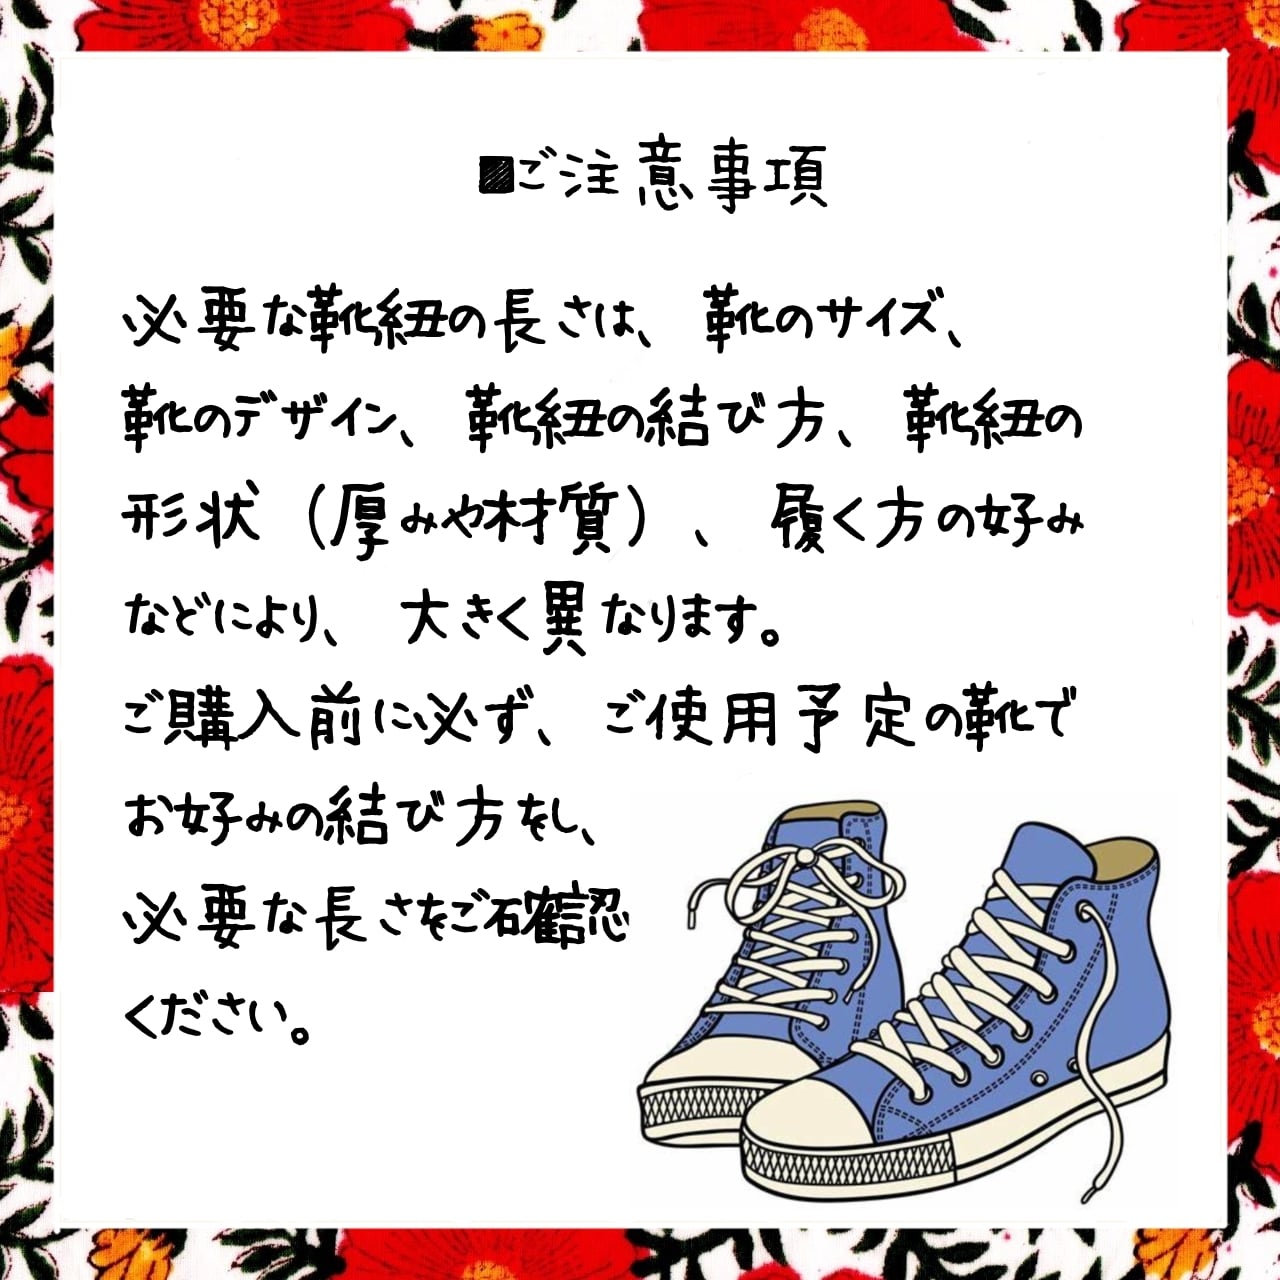 ■ご注意事項
必要な靴紐の長さは、靴のサイズ、
靴のデザイン、靴紐の結び方、靴紐の
形状（厚みや材質）、履く方の好み
などにより、大きく異なります。
ご購入前に必ず、ご使用予定の靴で
お好みの結び方をし、
必要な長さをご確認
ください。